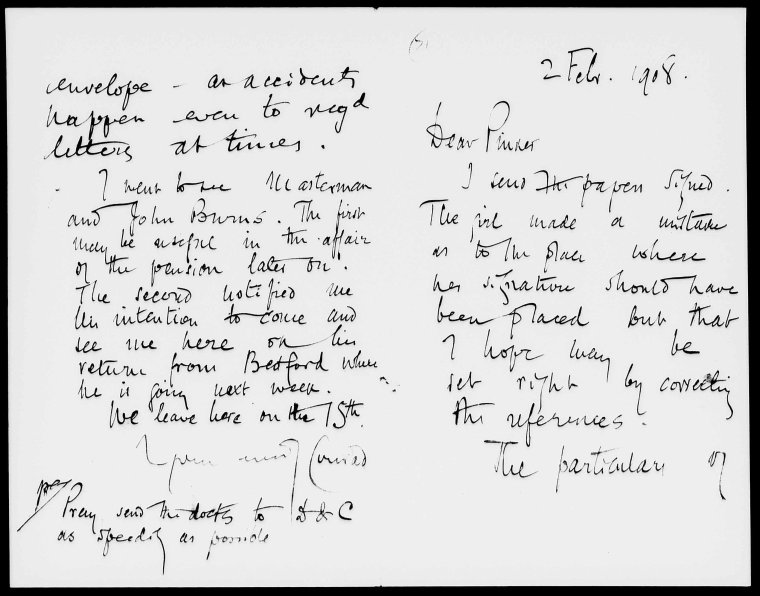 2 Febr. 1908.
Dear Pinker
I send the papers signed.
The girl made a mistake
as to the place where
her signature should have
been placed but that
I hope may be
set right by correcting
the references.
The particulars of
envelope – as accidents
happen even to regd
letters at times.
I went to see Masterman
and John Burns. The first
may be useful in the affair
of the pension later on.
The second notified me
his intention to come and
see me here on his
return from Bedford where
he is going next week.
We leave here on the 15th.
Yours Conrad
PS
Pray send the docts to D & C
as speedily as possible